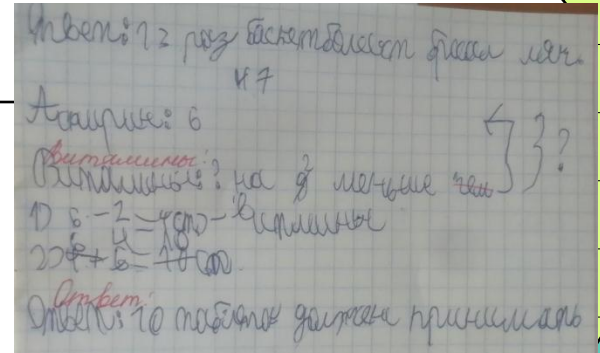 Ответ: 13 раз баскетболист бросал мяч.
№7
Аспирин: 6
Витамины:
Витамины: ? на 2 меньше чем ?
1) 6 - 2 = 4 - витамины
2) 4 + 6 = 10
Ответ:
Ответ: 10 таблеток должен принимать